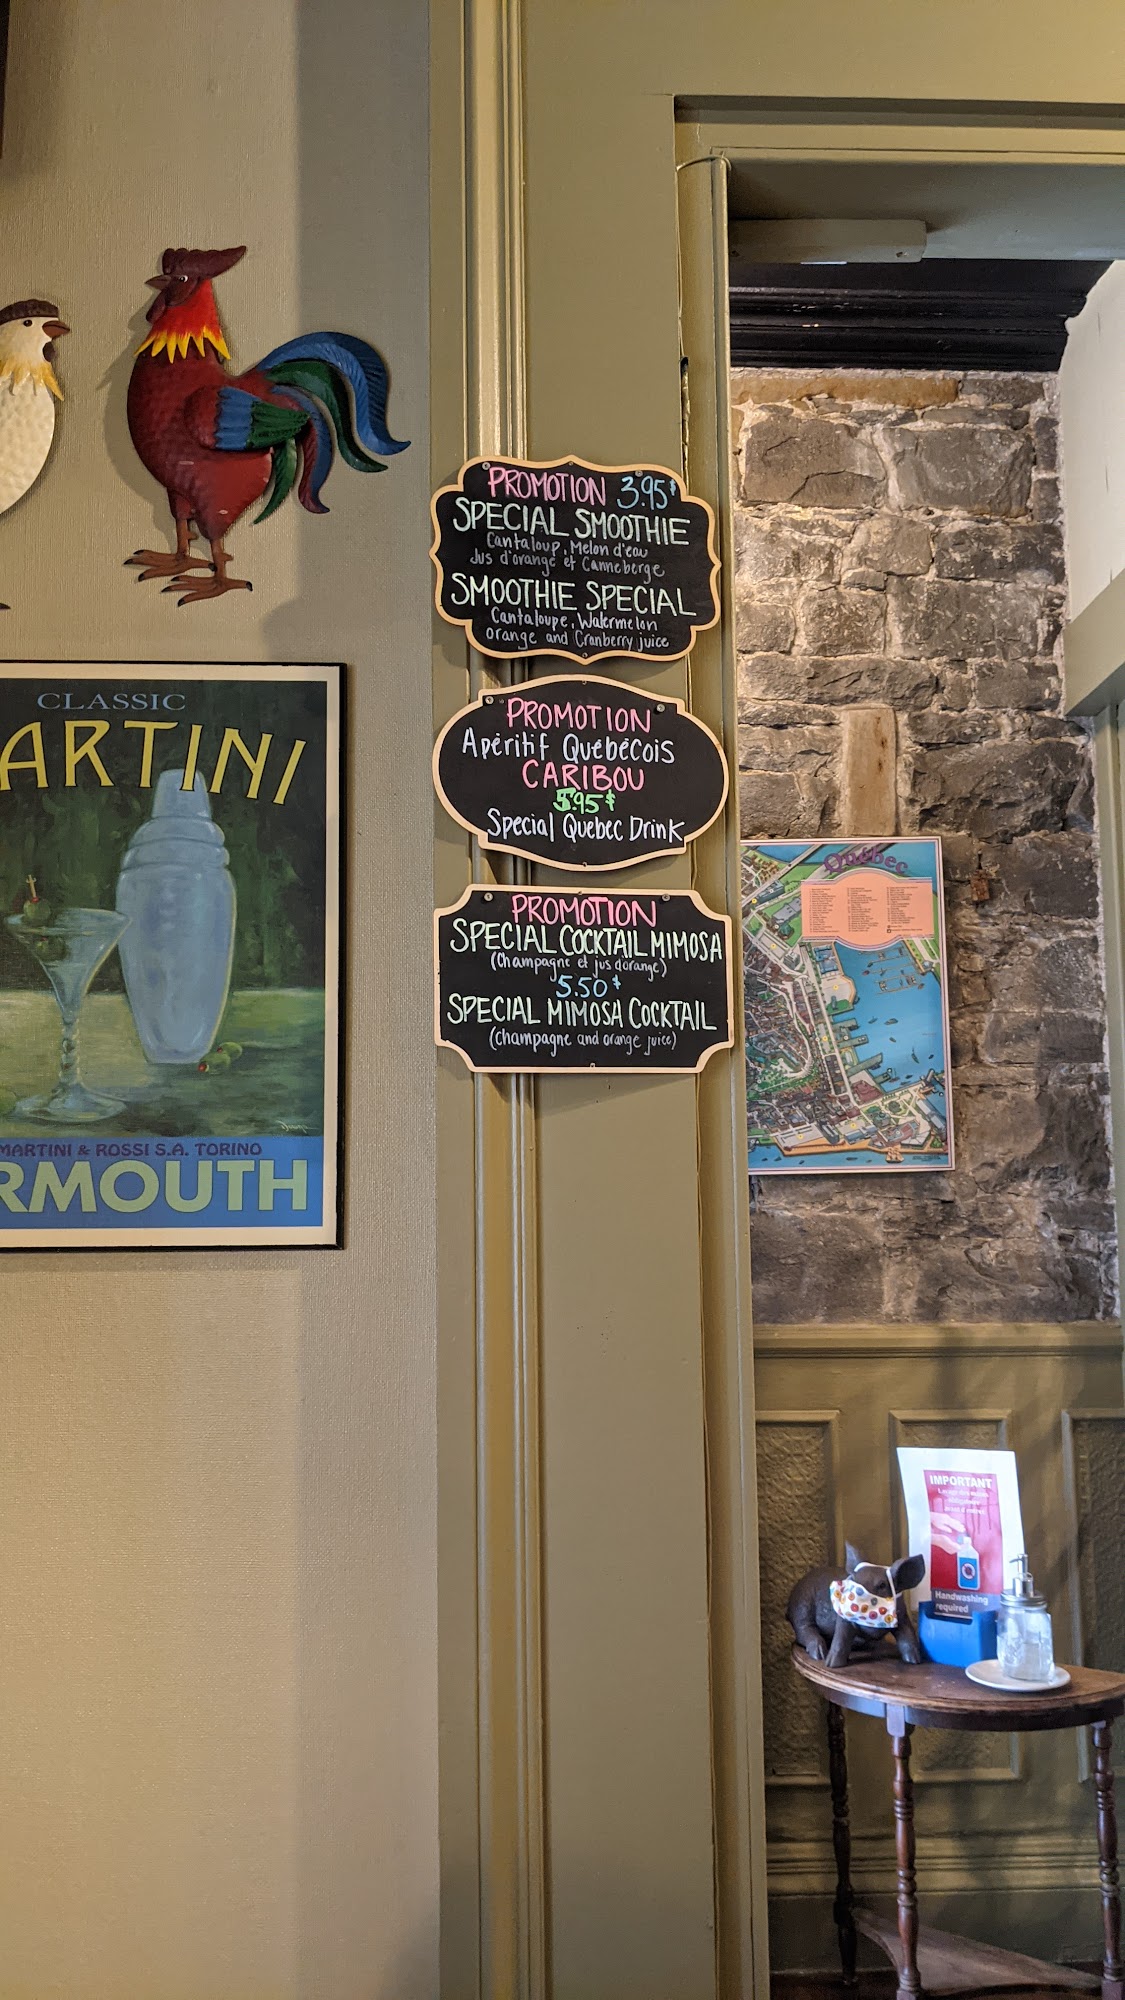 PROMOTION 3.95$
SPECIAL SMOOTHIE
Cantaloup, Melon d'eau
Jus d'orange et Canneberge
SMOOTHIE SPECIAL
Cantaloupe, Watermelon
orange and Cranberry juice
PROMOTION
Apéritif Québécois
CARIBOU
5.95$
Special Quebec Drink
PROMOTION
SPECIAL COCKTAIL MIMOSA
(Champagne et jus d'orange)
5.50$
SPECIAL MIMOSA COCKTAIL
(champagne and orange juice)
CLASSIC
ARTINI
MARTINI & ROSSI S.A. TORINO
RMOUTH
Québec
IMPORTANT
Handwashing
required